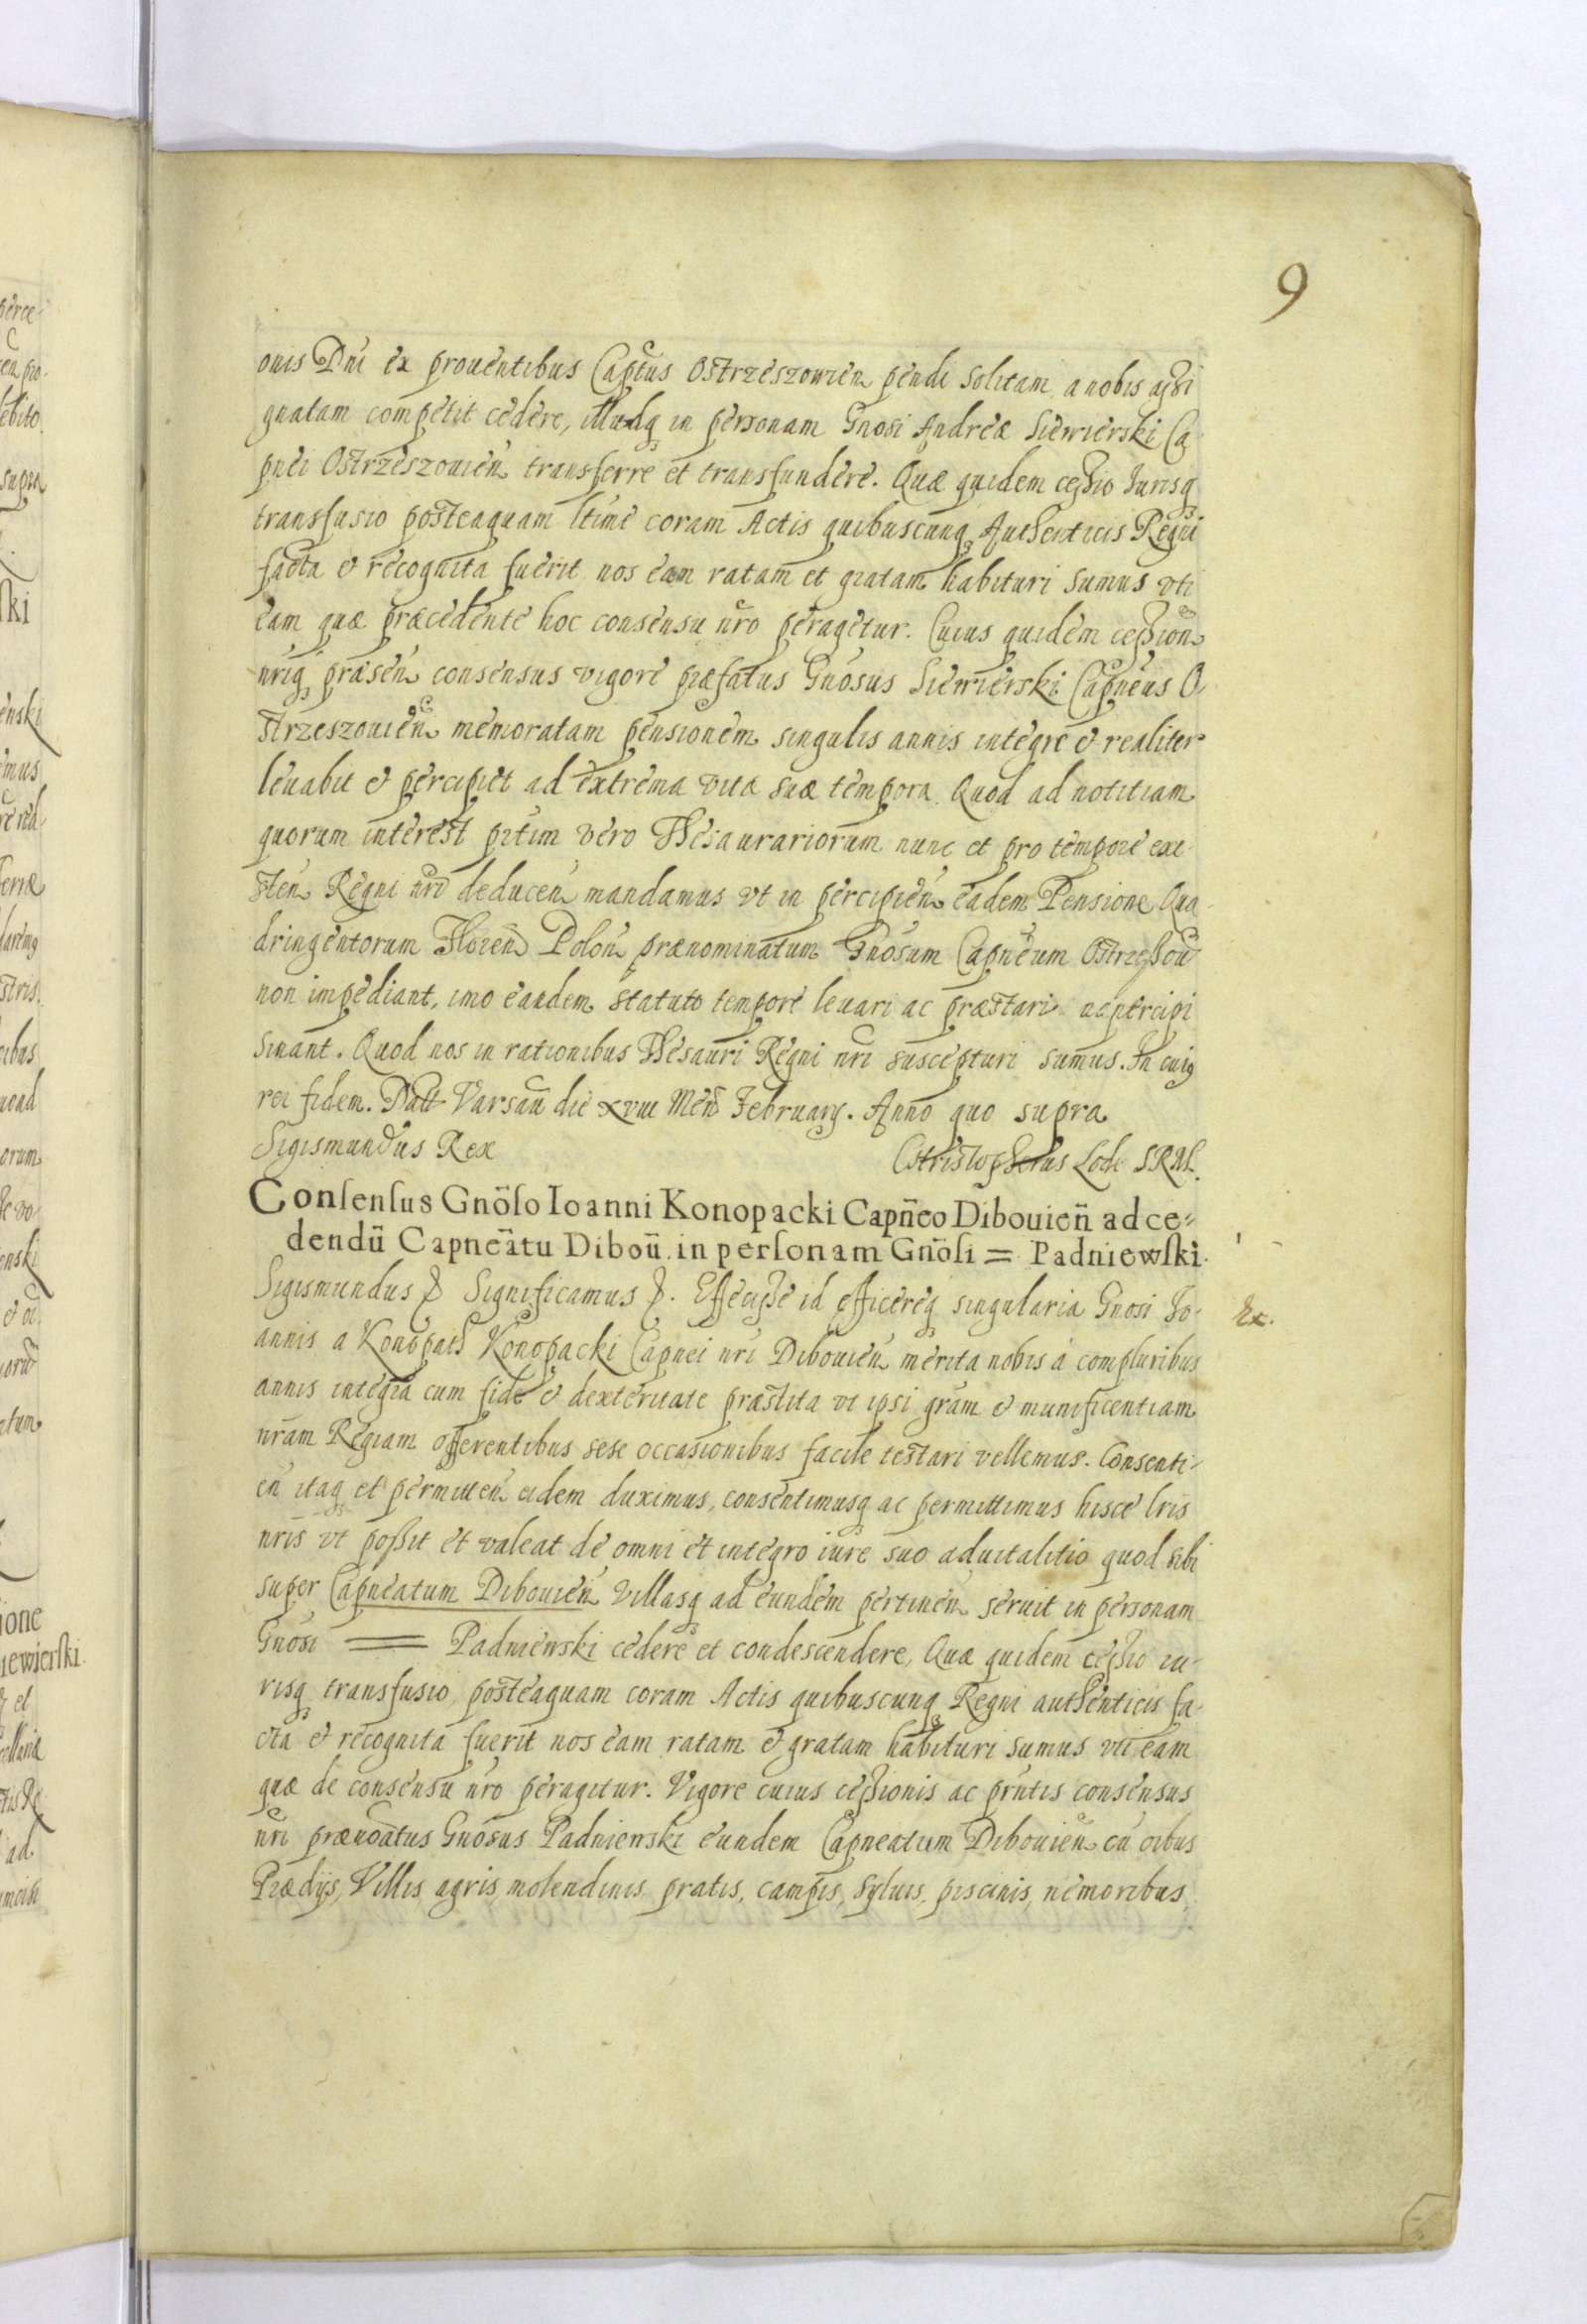 9
onis Dni ex prouentibus Capttus Ostrzeszowien pendi solitam a nobis assi
gnatam competit cedere, illudq in personam Gnosi Andreæ Siewierski Ca
pnei Ostrzeszouien transferre et transfundere. Quæ quidem cessio Jurisq
transfusio posteaquam ltime coram Actis quibuscunq Authenticis Regni
facta & recognita fuerit nos eam ratam et gratam habituri sumus vti
eam quæ præcedente hoc consensu nro peragetur. Cuius quidem cession
nriq præsen consensus vigore præfatus Gnosus Siewierski Capneus O
strzeszouien memoratam pensionem singulis annis integre & realiter
leuabit & percipiet ad extrema vitæ suæ tempora. Quod ad notitiam
quorum interest prtim vero Thesaurariorum nunc et pro tempore exi
sten Regni nri deducen mandamus vt in percipien eadem Pensione Qua
dringentorum Floren Polon prænominatum Gnosum Capneum Ostrzessou
non impediant, imo eandem statuto tempore leuari ac præstari ac percipi
sinant. Quod nos in rationibus Thesauri Regni nri suscepturi sumus. In cuig
rei fidem. Datt Varsau die xviii Men February. Anno quo supra
Sigismundus Rex Christopherus Lode SRM.
Consensus Gnöso Ioanni Konopacki Capñeo Dibouień ad ce=
dendū Capneãtu Diboū in personam Gnösi = Padniewski.
Sigismundus & Significamus &. Effecisse id efficereq singularia Gnosi Jo-
annis a Konopath Konopacki Capnei nri Dibouien merita nobis à compluribus
annis integra cum fide & dexteritate præstita vt ipsi gram & munificentiam
nram Regiam offerentibus sese occasionibus facile testari vellemus. Consenti-
en itaq et permitten eidem duximus, consentimusq ac permittimus hisce lris
nris vt possit et valeat de omni et integro iure suo aduitalitio quod sibi
super Capneatum Dibouien Villasq ad eundem pertinen seruit in personam
Gnosi = Padniewski cedere et condescendere, Quæ quidem cessio iu-
risq transfusio, posteaquam coram Actis quibuscunq Regni authenticis fa-
cta & recognita fuerit nos eam ratam & gratam habituri sumus vti eam
quæ de consensu nro peragitur. Vigore cuius cessionis ac prntis consensus
nri prænoatus Gnosus Padniewski eundem Capneatum Dibouien cu oibus
Prædijs, Villis agris, molendinis, pratis, campis, syluis, piscinis, nemoribus,
Ex.